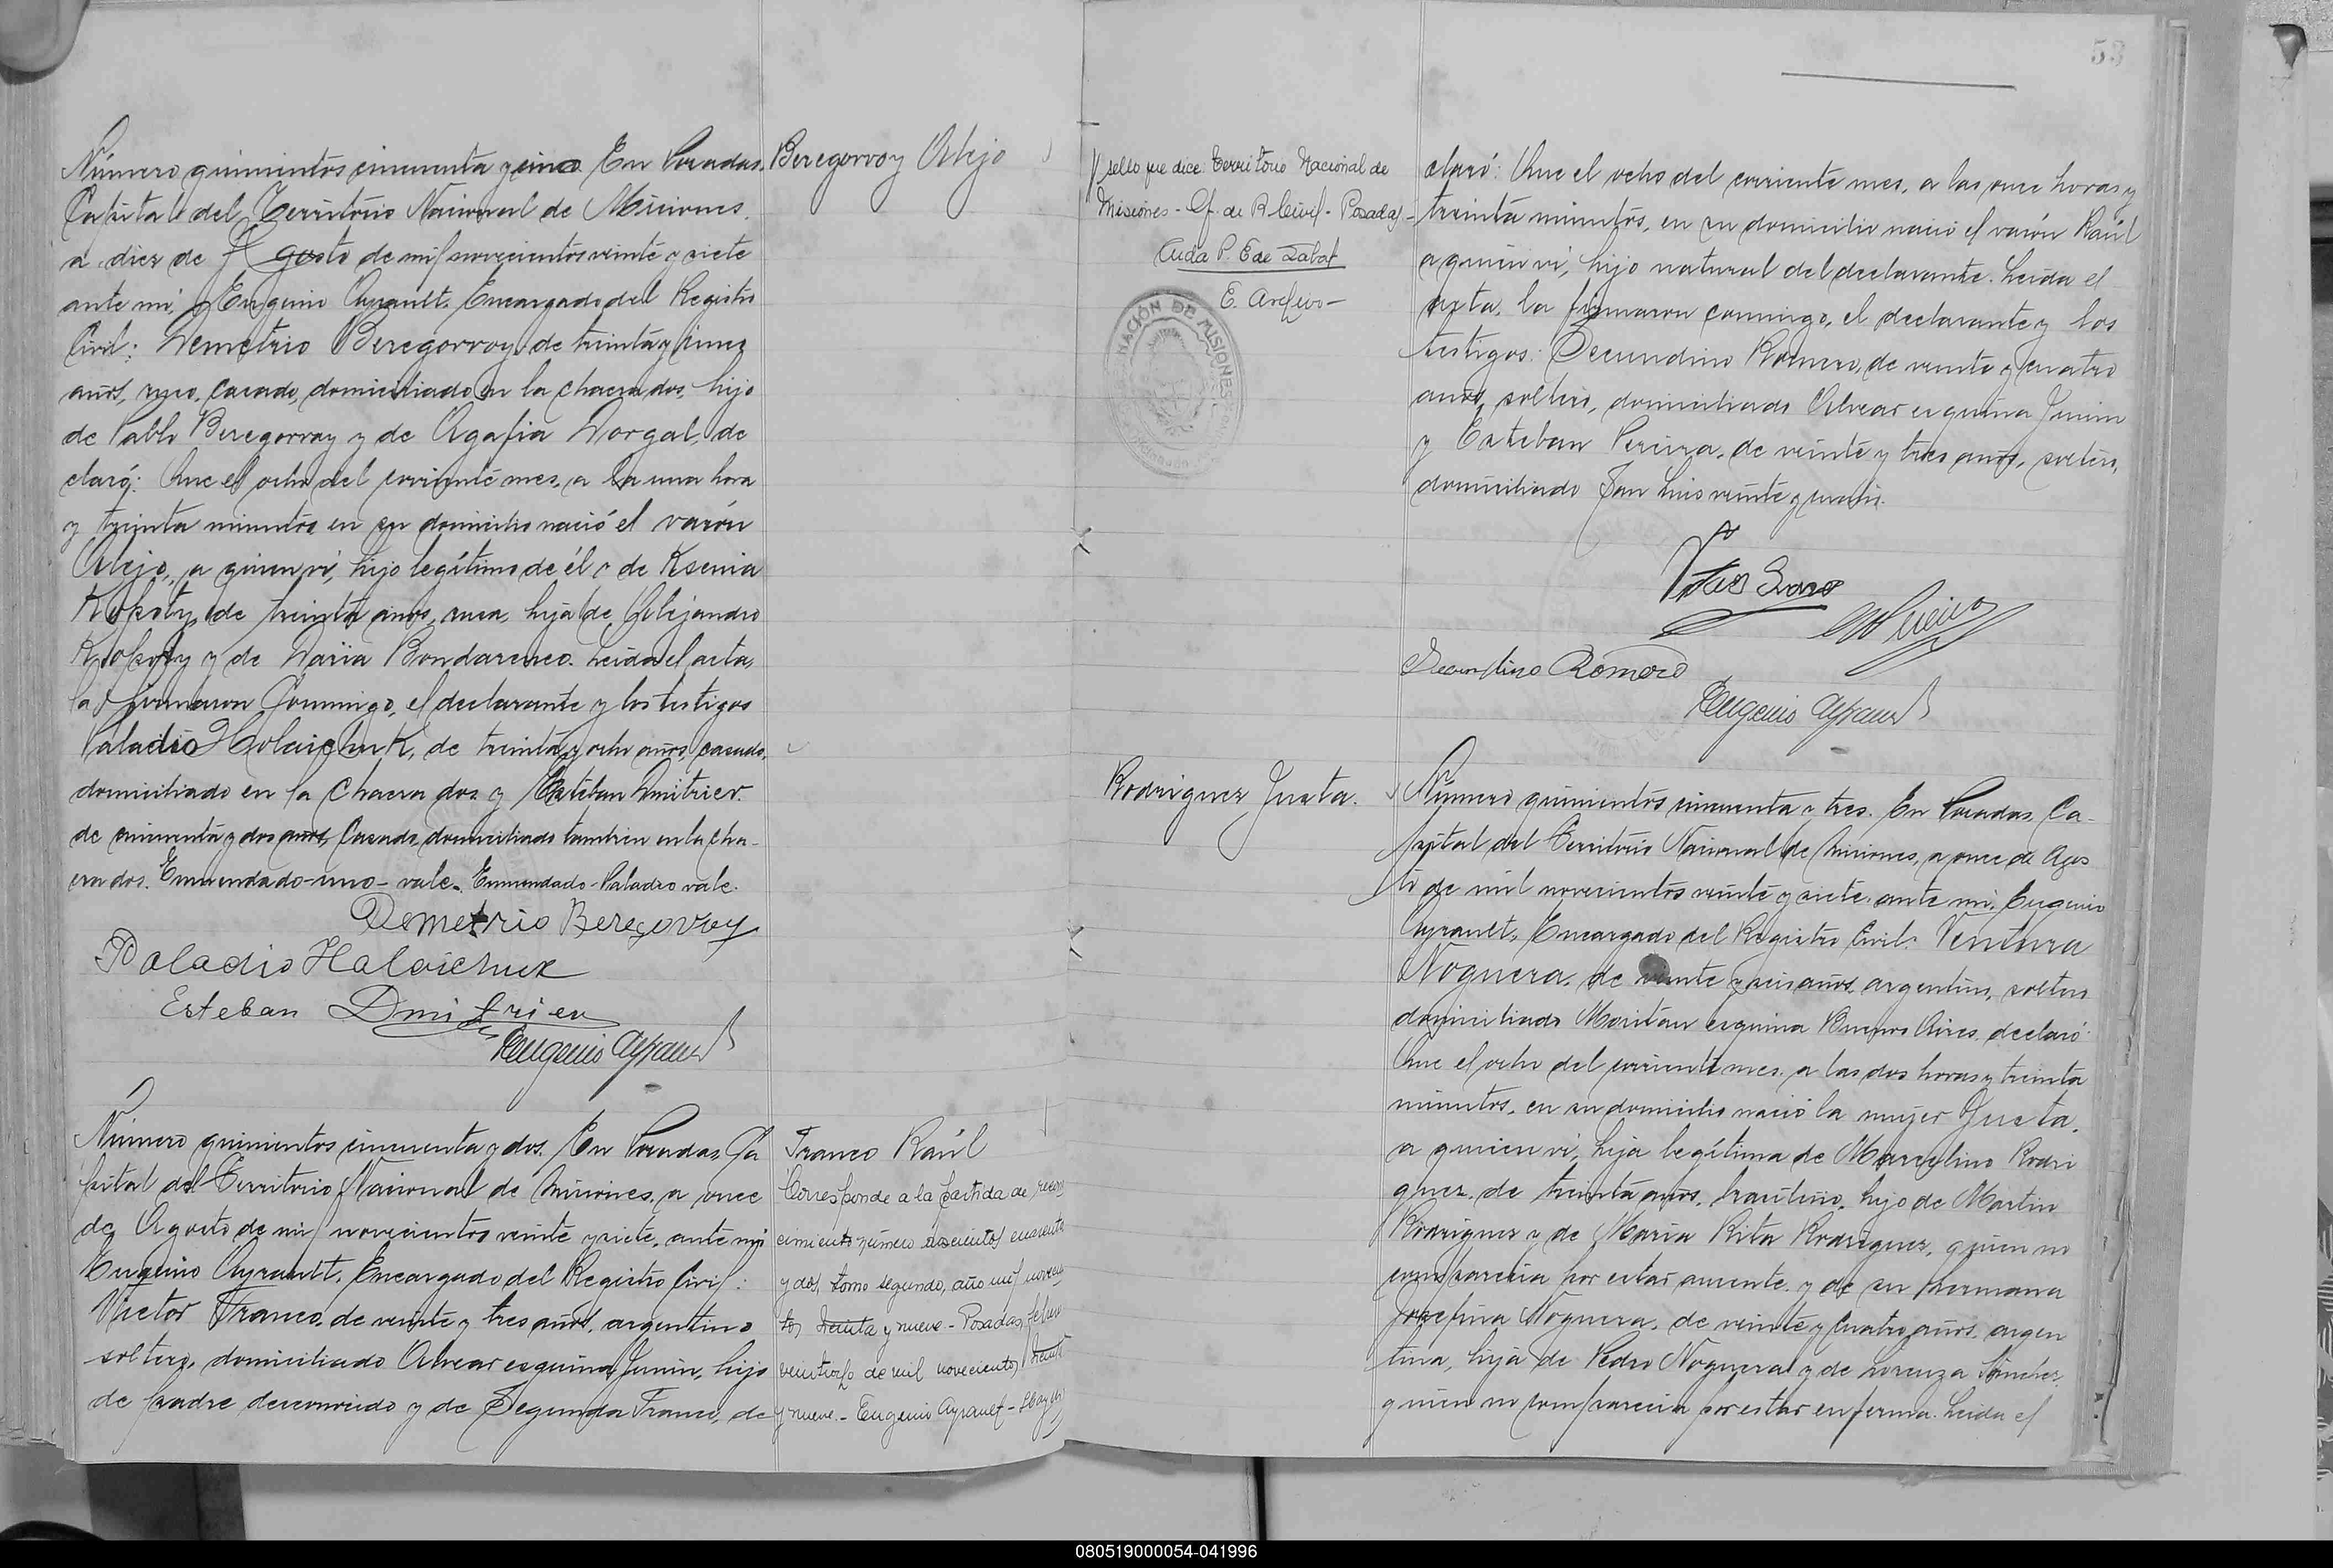 Número quinientos cincuenta y uno. En Posadas,
Capital del Territorio Nacional de Misiones,
a diez de Agosto de mil novecientos veinte y siete
ante mí, Eugenio Ayrault, Encargado del Registro
Civil: Demetrio Beregovoy, de treinta y cinco
años, ruso, casado, domiciliado en la chacra dos, hijo
de Pablo Beregovoy y de Agafia Dorgal, de
claró: Que el ocho del corriente mes, a la una hora
y treinta minutos en su domicilio nació el varón
Alejo, a quien vi, hijo legítimo de él y de Ksenia
de treinta años, rusa, hija de Alejandro
y de Daria Bondarenco. Leida el acta,
la firmaron conmigo, el declarante y los testigos
Paladio Holaichuk, de treinta y ocho años, casado,
domiciliado en la Chacra dos y Esteban Dmitriev
de cincuenta y dos años, casado, domiciliado tambien en la cha-
cra dos. Enmendado-uno-vale. Enmendado-Paladio vale.
Demetrio Beregovoy
Paladio Halaichuk
Esteban Dmitriev
Eugenio Ayrault
Beregovoy Alejo
Número quinientos cincuenta y dos. En Posadas, Ca
pital del Territorio Nacional de Misiones, a once
de Agosto de mil novecientos veinte y siete, ante mí
Eugenio Ayrault, Encargado del Registro Civil:
Victor Franco, de veinte y tres años, argentino
soltero, domiciliado Alvear esquina Junin, hijo
de padre desconocido y de Segunda Franco, de
Franco Raúl
Corresponde a la partida de recono
cimiento número doscientos cuarenta
y dos, tomo segundo, año mil novecien
tos treinta y nueve - Posadas, febrero
de mil novecientos treinta
y nueve.- Eugenio Ayrault - Hay un
53
sello que dice: Territorio Nacional de
Misiones - Of. de R. Civil - Posadas -
E. Archivo -
NACIÓN DE MISIONES
claró: Que el ocho del corriente mes, a las once horas y
treinta minutos, en su domicilio nació el varón Raúl
a quien vi, hijo natural del declarante. Leida el
acta, la firmaron conmigo, el declarante y los
testigos: Secundino Romero, de veinte y cuatro
años, soltero, domiciliado Alvear esquina Junin
y Esteban Pereira, de veinte y tres años, soltero,
domiciliado San Luis veinte y cuatro.
Secundino Romero
Eugenio Ayrault
Rodriguez Justa.
Número quinientos cincuenta y tres. En Posadas, Ca-
pital del Territorio Nacional de Misiones, a once de Agos
to de mil novecientos veinte y siete, ante mí, Eugenio
Ayrault, Encargado del Registro Civil: Ventura
Noguera, de veinte y seis años, argentino, soltero
domiciliado Moritán esquina Buenos Aires, declaró:
Que el ocho del corriente mes, a las dos horas y treinta
minutos, en su domicilio nació la mujer Justa,
a quien vi, hija legítima de Marcelino Rodri
guez, de treinta años, brasileño, hijo de Martin
Rodriguez y de Maria Rita Rodriguez, quien no
comparecia por estar ausente y de su hermana
Josefina Noguera, de veinte y cuatro años, argen
tina, hija de Pedro Noguera y de Lorenza Sanchez,
quien no comparecia por estar enferma. Leida el
080519000054-041996